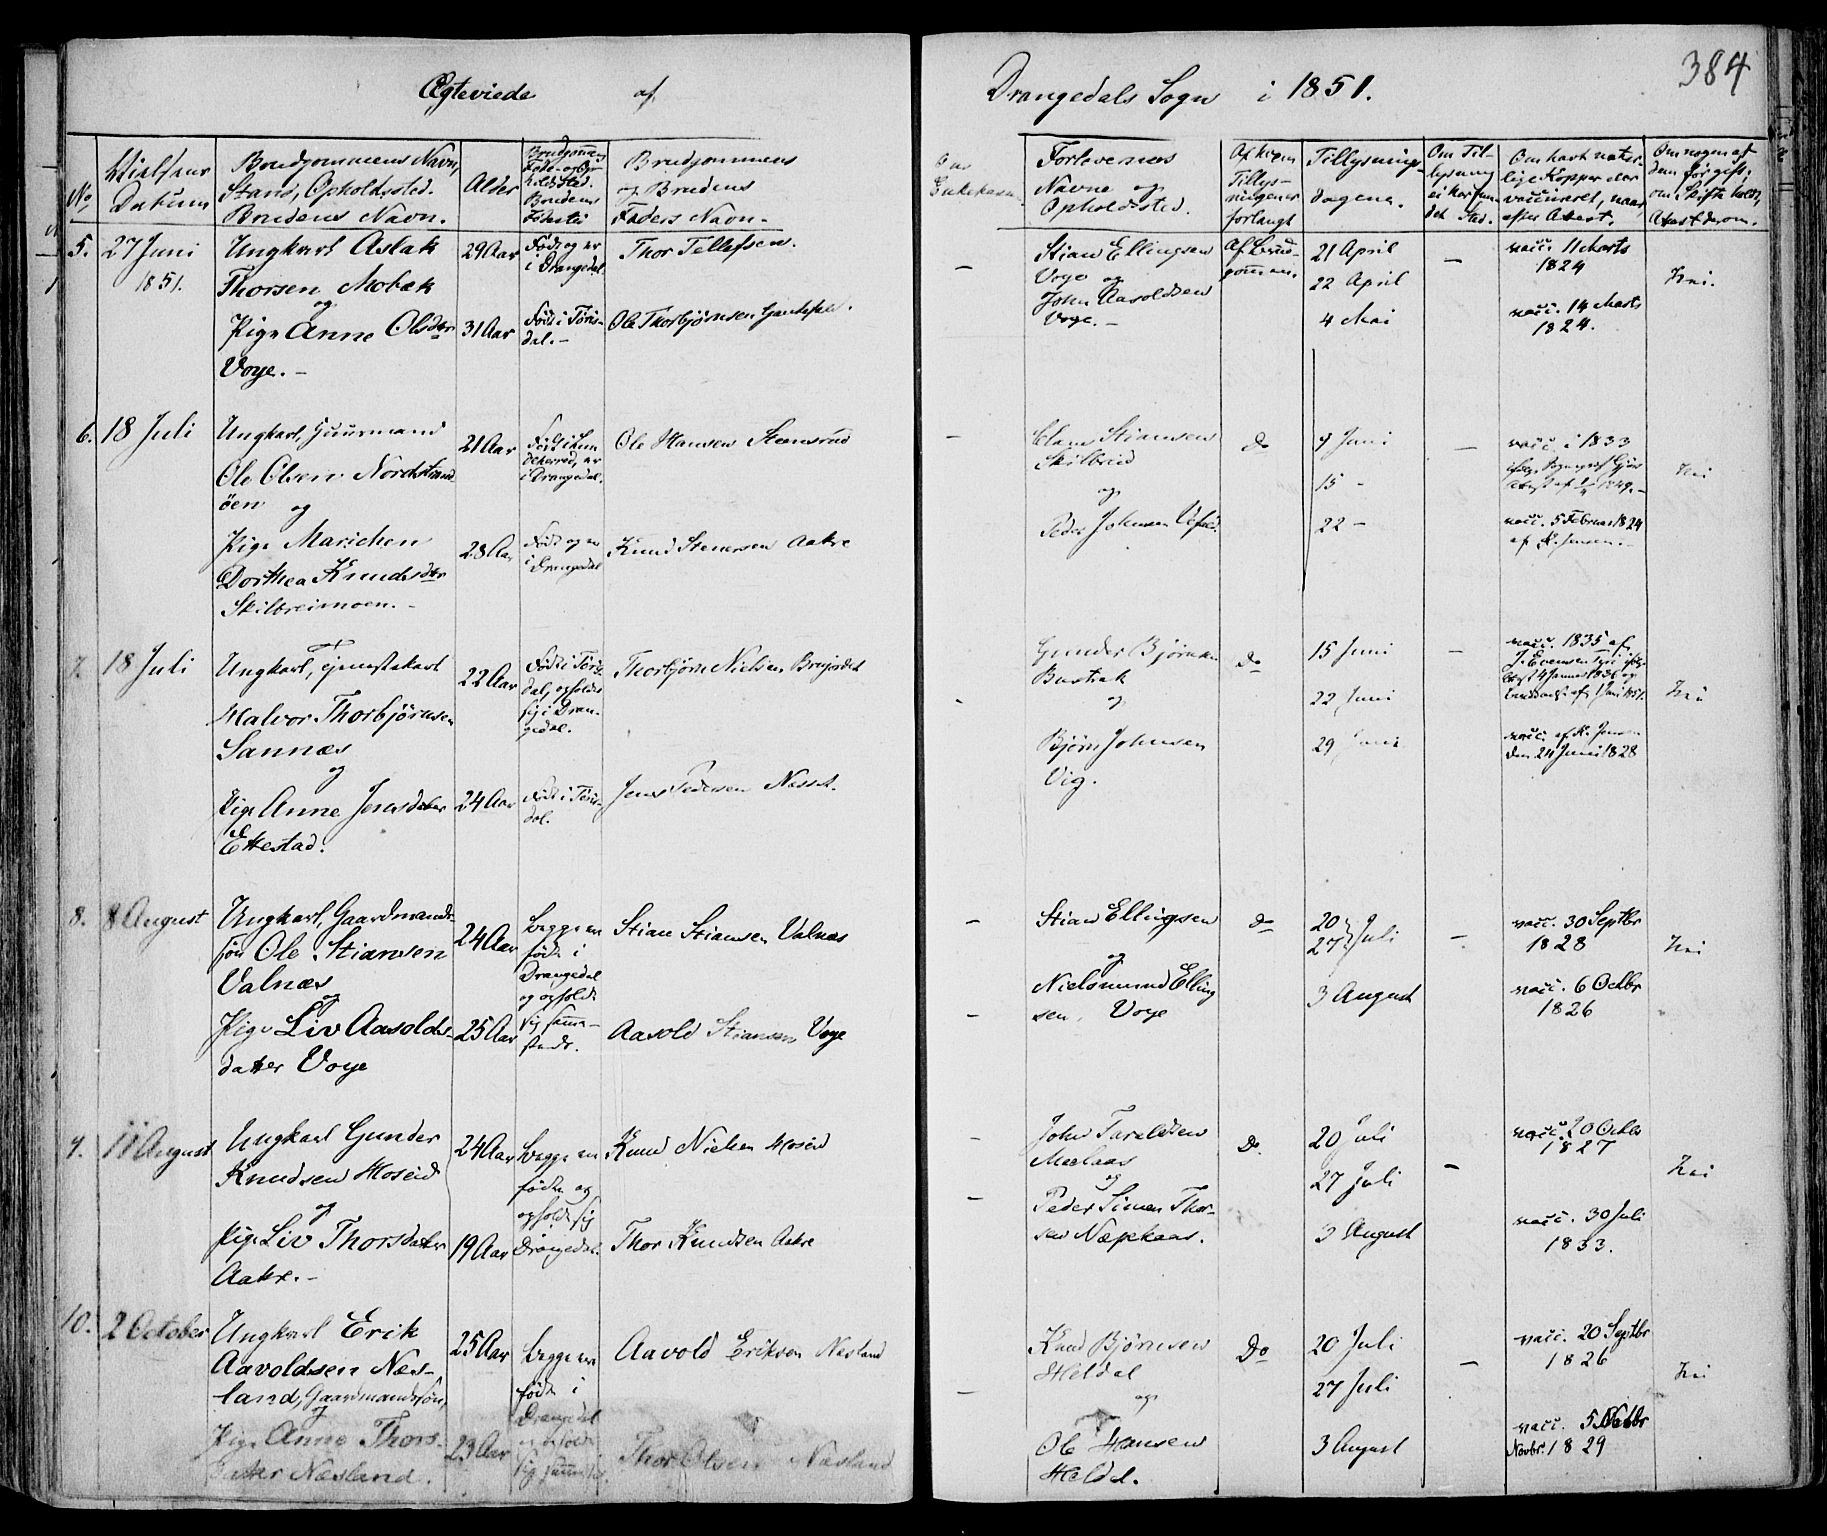 Ægteviede af Drangedals Sogn i 1851.
384
No
Datum
Brudgommens Navn,
Stand, Opholdssted.
Brudens Navn.
Alder
Brudgommens
og Brudens
Faders Navn.
Forlovernes
Navne og
Opholdssted.
Af hvem
Tillys-
ningen er
forlangt
Tillysnings-
dagene.
Om Til-
lysning
Om havt natur-
lige Kopper eller
vaccineret, naar
efter Attest.
Om nogen af
dem før gift,
om Skifte holdt,
Attest derom.
5. 27 Juni
1851.
Ungkarl Aslak
Thorsen Mobæk
og
Pige Anne Olsdtr
Voje. -
29 Aar
31 Aar
Født og er
i Drangedal
Født i Tøris-
dal. -
Thor Tellefsen.
Ole Thorbjørnsen
Stian Ellingsen
Voje og
John Aavoldsen
Voje. -
Af Brud-
gommen.
21 April
22 April
4 Mai
vacc. 11 Marts
1824
vacc. 14 Marts
1824.
Nei.
6. 18 Juli
Ungkarl, Huusmand
Ole Olsen Nordstrand
øen og
Pige Marichen
Dorthea Knudsdtr
Skilbreimoen. -
21 Aar
28 Aar
i Drangedal.
Født og er
i Drangedal
Ole Hansen Steensrud
Knud Stenersen Aakre
Claus Stiansen
Skilbred
og
Peder Johnsen
Do
9 Juni
15 -
22 -
vacc. i 1833
vacc. 5 Februar 1824
af K. Jensen. -
Nei
7. 18 Juli
Ungkarl, Tjenestekarl
Halvor Thorbjørnsen
Sannæs
og
Pige Anne Jensdatter
Ettestad.
22 Aar
24 Aar
Født i Tøris-
dal, opholder
sig i Dran-
gedal.
Født i Tøris-
dal.
Thorbjørn Nielsen
Jens Pedersen Næsset.
Gunder Bjørnsen
Bostrak
og
Bjørn Johnsen
Vig.
Do
15 Juni
22 Juni
29 Juni
vacc. 1835 af
vacc. af K. Jensen
den 24 Juni 1828
Nei
8. 8 August
Ungkarl, Gaardmands-
søn Ole Stiansen
Valnæs
og
Pige Liv Aavolds-
datter Voje
24 Aar
25 Aar
begge ere
født i
Drangedal
og opholde
sig samme-
steds.
Stian Stiansen Valnæs
Aavold Stiansen Voje
Stian Ellingsen
og
Nielsmund Elling
sen, Voje
Do
20
27 Juli
3 August
vacc. 30 Septbr
1828
vacc. 6 Octbr
1826
Nei
9. 11 August
Ungkarl Gunder
Knudsen Hoseid
og
Pige Liv Thorsdatter
Aakre. -
24 Aar
19 Aar
begge ere
fødte og
opholde sig
Drangedal.
Knud Nielsen Hoseid
Thor Knudsen Aakre
John Taraldsen
Mælaas
og
Peder Simen Thor-
sen Næpekaas.
Do.
20 Juli
27 Juli
3 August
vacc. 20 Octbr
1827
vacc. 30 Juli
1833.
Nei
10. 2 October
Ungkarl Erik
Aavoldsen Næs-
land, Gaardmandssøn,
og
Pige Anne Thors-
datter Næsland.
25 Aar
23 Aar
begge ere
født i
Drangedal
Aavold Eriksen Næsland
Thor Olsen Næsland
Knud Bjørnsen
Heldal
og
Ole Hansen
Heldal.
Do
20 Juli
27 Juli
3 August
vacc. 20 Septbr
1826
vacc. 5
Novbr. 1829
Nei